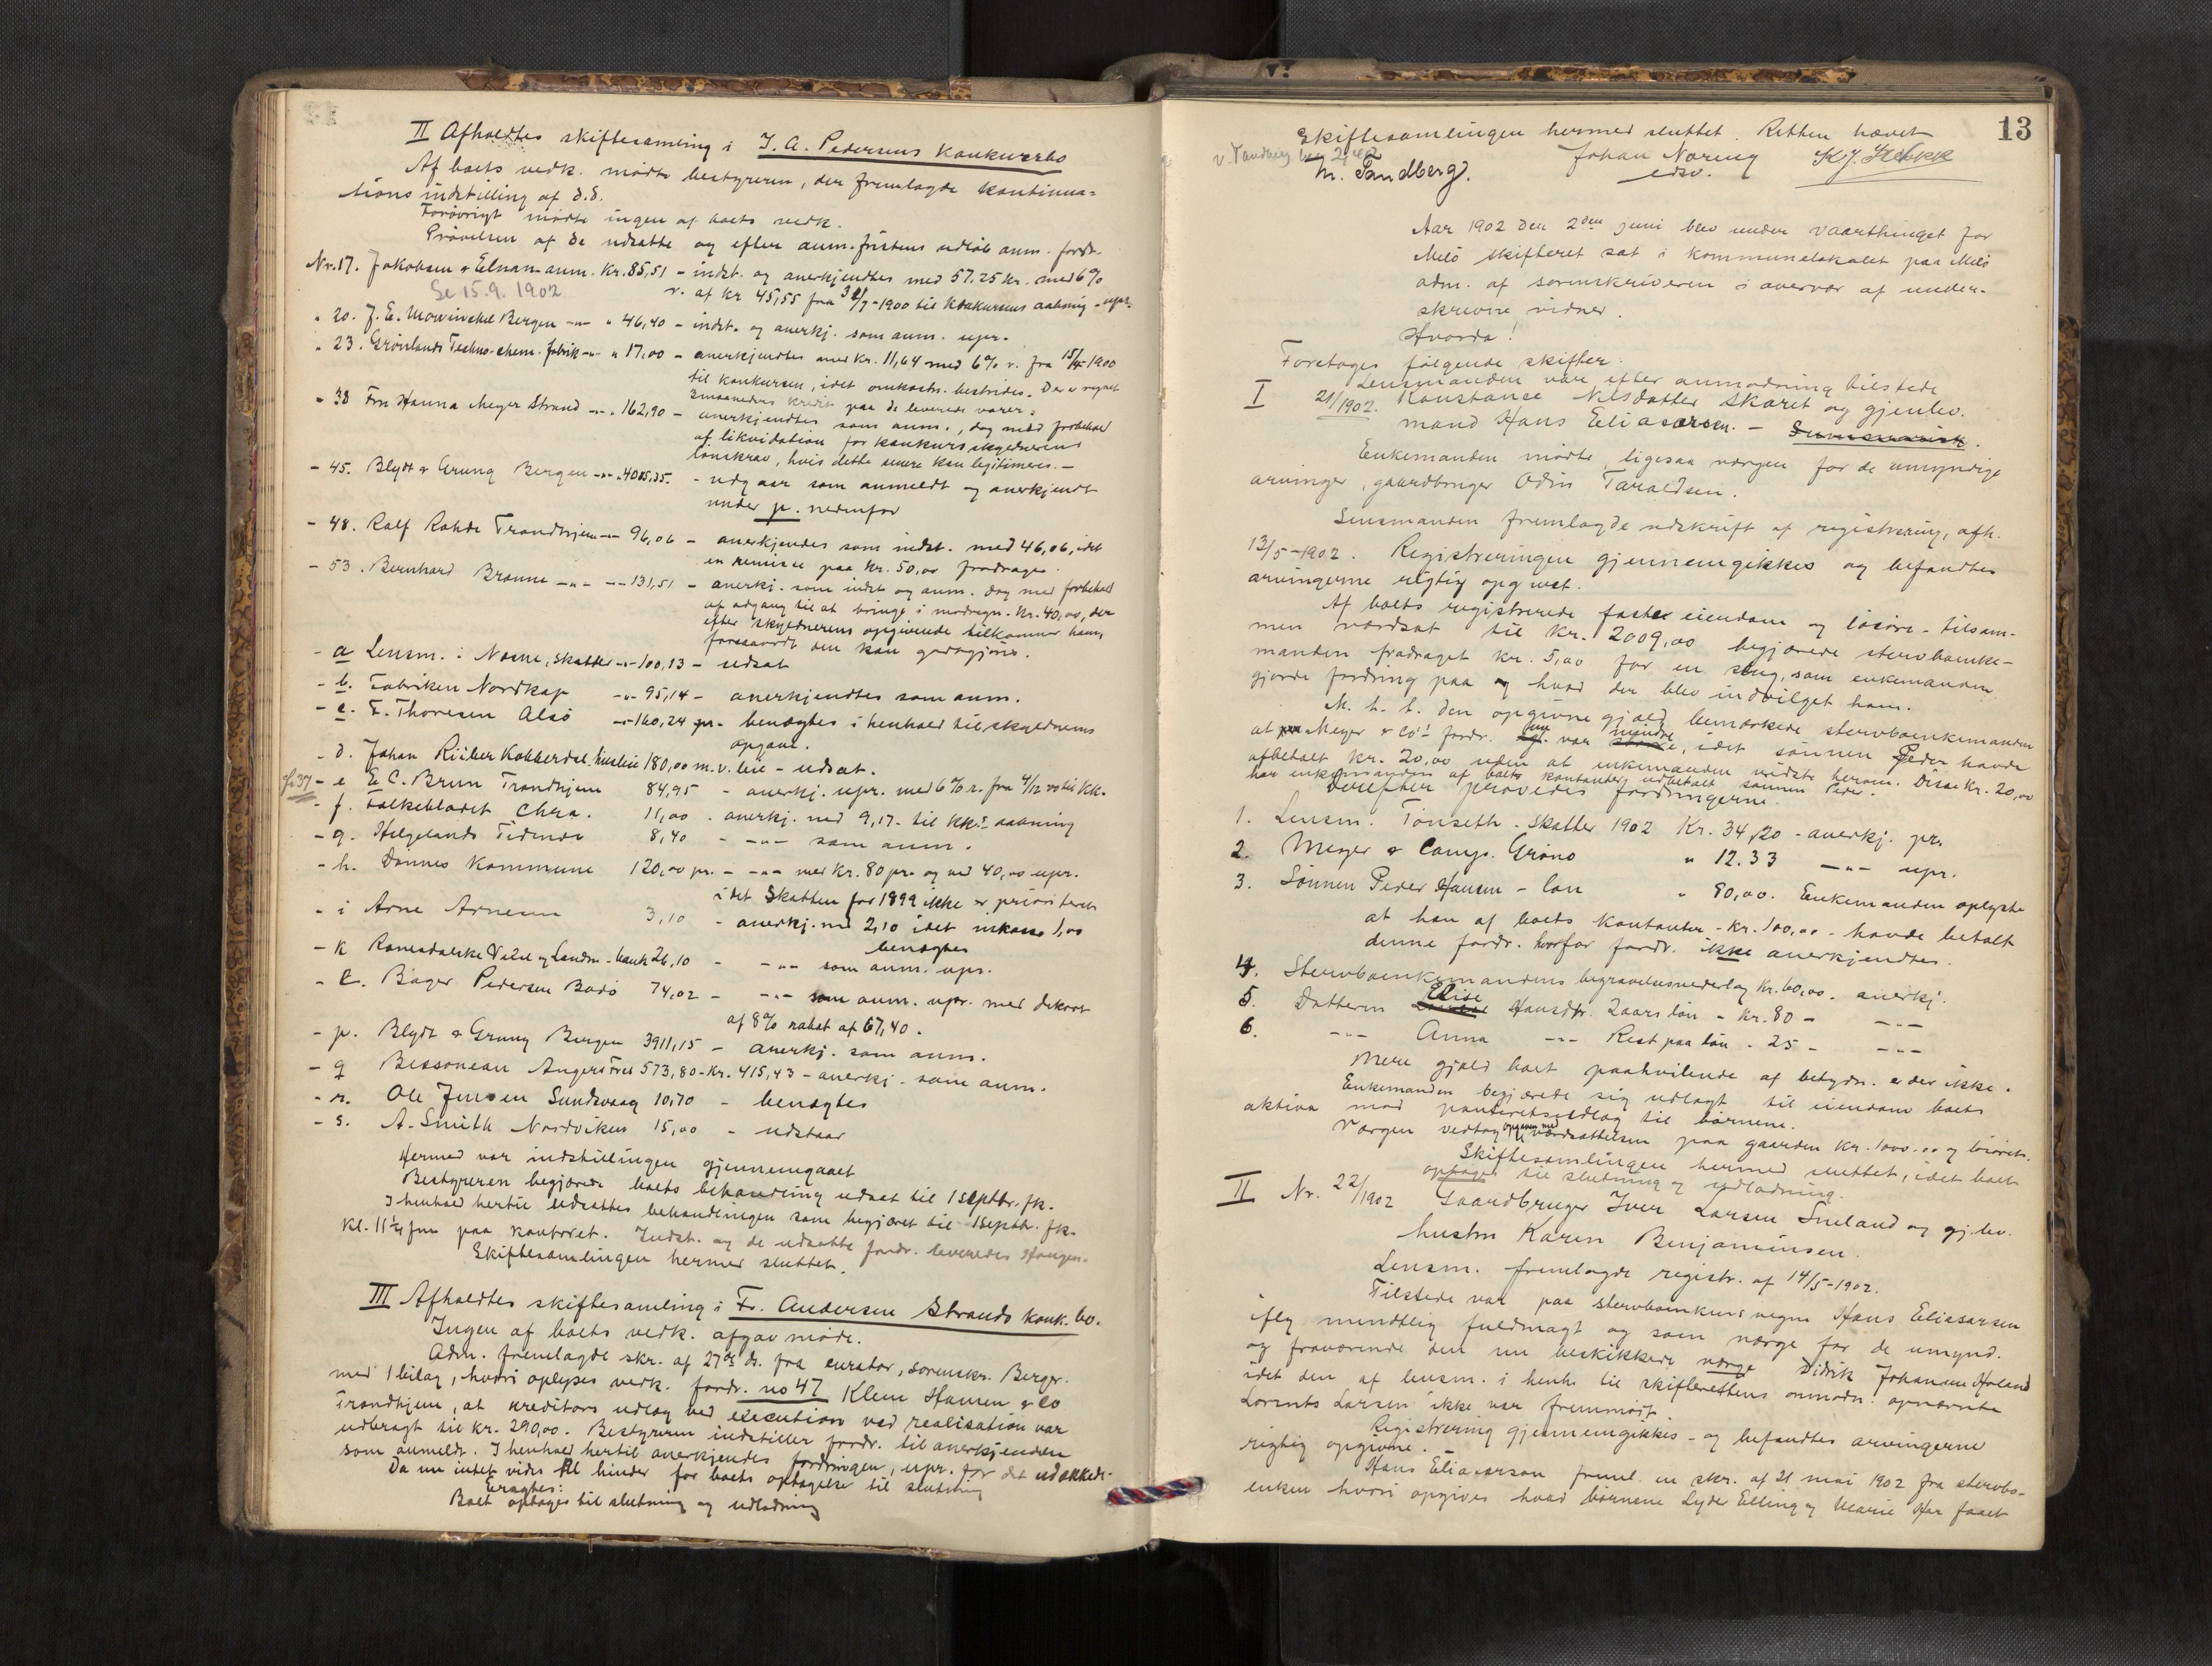 II Afholdtes skiftesamling i J. A. Pedersens konkursbo
Af boets vedk. mødte bestyreren, der fremlagde kontinua-
tions indstilling af d.d.
Forøvrigt mødte ingen af boets vedk.
Prøvelsen af de udsatte og efter anm. fristens udløb anm. fordr.
Nr. 17. Jakobsen & Elnan anm. Kr. 85,51 - indst. og anerkjendtes med 57.25 kr. med 6%
Se 15.9.1902
r. af kr 45,55 fra 31/7-1900 til konkursens aabning - upr.
" 20. J. E. Mowinckel Bergen -"- " 46,40 - indst. og anerkj. som anm. upr.
" 23. Grönlands Techno-chem. fabrik -"- " 17,00 - anerkjendtes med kr. 11,64 med 6% r. fra 15/4-1900
til konkursen, idet omkostn. bestrides. Der er regnet
3maaneders kredit paa de leverede varer.
" 38 Fru Hanna Meyer Strand -"- " 162,90 - anerkjendtes som anm., dog med forbehold
af likvidation for konkursskyldnerens
lønskrav, hvis dette senere kan legitimeres. -
- 45. Blydt & Grung Bergen -"- " 4005,35. - udgaar som anmeldt og anerkjendt
under p. nedenfor
- 48. Ralf Rohde Trondhjem -"- 96,06 - anerkjendes som indst. med 46,06, idet
en remisse paa kr. 50,00 fradrages.
- 53. Bernhard Brænne -"- -"- 131,51 - anerkj. som indst og anm. dog med forbehold
af adgang til at bringe i modregn. kr. 40,00, der
efter skyldnerens opgivende tilkommer ham,
forsaavidt den kan godtgjøres.
- a Lensm. i Næsne, skatter -"- 100,13 - udsat
- b. Fabriken Nordkap -"- 95,14 - anerkjendtes som anm.
- c. F. Thoresen Alsö -"- 160,24 pr. - benægtes i henhold til skyldnerens
opgave.
- d. Johan Riiber Kobberdal, husleie 180,00 m. v. leie - udsat.
- e E C. Brun Trondhjem 84,95 - anerkj. upr. med 6% r. fra 4/12 00 til KK.
- f. Folkebladet Chra. 11,00 - anerkj. med 9,17 - til KK's aabning
- g. Helgelands Tidende 8,40 - -"- som anm.
- h. Dønnes Kommune 120,00 pr. - -"- med kr. 80 pr. og med 40,00 upr.
idet skatten for 1899 ikke er prioriteret
- i Arne Arnesen 3,10 - anerkj. med 2,10 idet inkasso 1,00
benægtes
- k Ranendalske Vexel og Landm. bank 26,10 - -"- som anm. upr.
- l. Bager Pedersen Bodö 74,02 - -"- som anm. upr. med dekort
af 8% rabat af 67,40.
- p. Blydt & Grung Bergen 3911,15 - anerkj. som anm.
- q Bessonean Angers Frcs 573,80 - Kr. 415,43 - anerkj. som anm.
- r. Ole Jensen Sundsvaag 10,70 - benægtes
- s. A. Smith Nordviken 15,00 - udstaar
Hermed var indstillingen gjennemgaaet
Bestyreren begjærede boets behandling udsat til 1 septbr. fk.
I henhold hertil udsattes behandlingen som begjæret til 1 septbr. fk.
kl. 11 1/4 fm paa kontoret. Indst. og de udsatte fordr. leveredes
Skiftesamlingen hermed sluttet.
III Afholdtes skiftesamling i Fr. Andersen Strands konk. bo.
Ingen af boets vedk. afgav møde.
Adm. fremlagde skr. af 27 ds. fra curator, sorenskr. Berger.
med 1 bilag, hvori oplyses vedk. fordr. no 47 Klem Hansen & Co
Trondhjem, at kreditors udlæg ved execution ved realisation var
udbragt til kr. 290,00. Bestyreren indstiller fordr. til anerkjendelse
som anmeldt. I henhold hertil anerkjendes fordringen, upr. for det udækkede.
Da nu intet vides til hinder for boets optagelse til slutning
Eragtes:
Boet optages til slutning og udlodning
13
Skiftesamlingen hermed sluttet. Retten hævet
M. Tandberg. Johan Næring
edsv.
Aar 1902 den 2den juni blev under vaarthinget for
Melö skifteret sat i kommunelokalet paa Melö
adm. af sorenskriveren i overvær af under-
skrevne vidner.
Hvorda!
Foretoges følgende skifter.
Lensmanden var efter anmodning tilstede
I 21/1902. Konstanse Nilsdatter Skaret og gjenlev.
mand Hans Eliasarsen. - Summarisk.
Enkemanden mødte, ligesaa værgen for de umyndige
arvinger, gaardbruger Odin Taraldsen.
Lensmanden fremlagde udskrift af registrering, afh.
13/5-1902. Registreringen gjennemgikkes og befandtes
arvingerne rigtig opgivet.
Af boets registrerede faste eiendom og løsøre - tilsam-
men værdsat til Kr. 2009,00 begjærede stervboenke-
manden fradraget kr. 5,00 for en seng, som enkemanden
gjorde fordring paa og hvad der blev indvilget ham.
M. h. t. den opgivne gjæld bemærkede stervboenkemanden
at Meyer & Co's fordr. nu var mindre, idet sønnen Peder havde
afbetalt kr. 20,00 uden at enkemanden vidste herom. Disse kr. 20,00
har enkemanden af boets kontanter udbetalt sønnen Peder.
Derefter prøvedes fordringerne.
1. Lensm. Tønseth - skatter 1902 Kr. 34,20 - anerkj. pr.
2. Meyer & Comp. Grønø " 12.33 -"- upr.
3. Sønnen Peder Hansen - løn " 80,00. Enkemanden oplyste
at han af boets kontanter - kr. 100,00 - havde betalt
denne fordr. hvorfor fordr. ikke anerkjendtes.
4. Stervboenkemandens begravelsesvederlag Kr. 60,00. anerkj.
5. Datteren Elise Hansdtr. 2aars løn - Kr. 80 - -"-
6. -"- Anna -"- Rest paa løn - 25 - -"-
Mere gjæld boet paahvilende af betydn. er der ikke.
Enkemanden begjærede sig udlagt til eiendom boets
aktiva mod panteretsudlæg til børnene.
Værgen vedtog opgaven med værdsættelsen paa gaarden kr. 1000.00
Skiftesamlingen hermed sluttet, idet boet
optages til slutning og udlodning.
II Nr. 22/1902 Gaardbruger Iver Larsen Sneland og gj. lev.
hustru Karen Benjaminsen.
Lensm. fremlagde registr. af 14/5-1902.
Tilstede var paa stervboenkens vegne Hans Eliasarsen
iflg mundtlig fuldmagt og som værge for de umynd.
og fraværende den nu beskikkede værge Didrik Johansen
idet den af lensm. i henh. til skifterettens anmodn. opnævnte
Lorents Larsen ikke var fremmødt.
Registrering gjennemgikkes - og befandtes arvingerne
rigtig opgivne.
Hans Eliasarsen freml. en skr. af 21 mai 1902 fra stervbo-
enken hvori opgives hvad børnene Lyder Elling og Marie har faaet